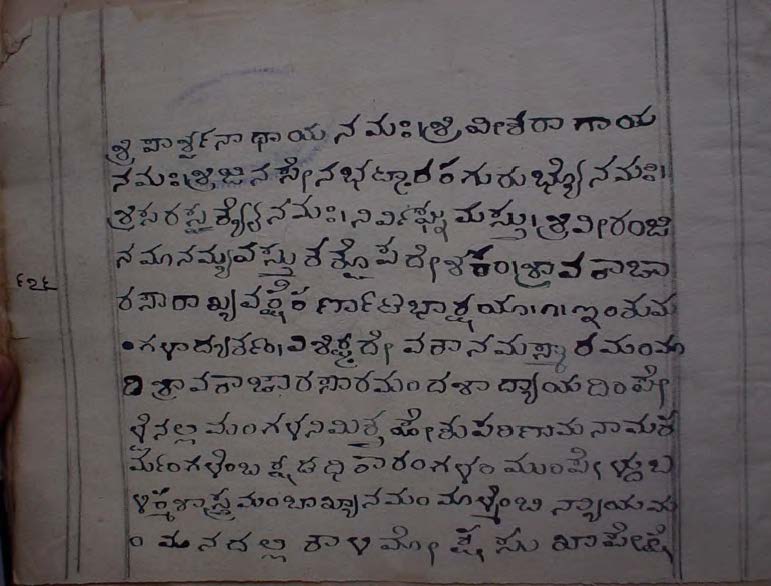 ಶ್ರಿ ಪಾರ್ಶ್ವನಾಥಾಯ ನಮಃ।ಶ್ರಿ ವೀತರಾಗಾಯ
ನಮಃ।ಶ್ರಿ ಜಿನಸೇನಭಟ್ಟಾರಕಗುರುಭ್ಯೋ ನಮಃ।
ಶ್ರಿ ಸರಸ್ವತ್ಯೈ ನಮಃ।ನಿರ್ವಿಘ್ನಮಸ್ತು।ಶ್ರಿ ವೀರಂಜಿ
ನಮಾನಮ್ಯವಸ್ತುತತ್ವೋಪದೇಶಕಂ।ಶ್ರಾವಕಾಚಾ
ರಸಾರಾಖ್ಯವಕ್ಷ್ಯೇಕರ್ಣಾಟಭಾಷಯಾ।೧।
ವಿಶಿಷ್ಟದೇವತಾನಮಸ್ಕಾರಮಂಮಾ
ಡಿ ಶ್ರಾವಕಾಚಾರಸಾರಮಂ ದಶಾಧ್ಯಾಯದಿಂಪೇ
ಮಂಗಳನಿಮಿತ್ತಹೇತುಪರಿಣಾಮನಾಮಕ
ರ್ತೃಗಳೆಂಬ ಷಡಧಿಕಾರಂಗಳಂ ಮುಂಪೇಳ್ದುಬ
ಳಿಕ್ಕಶಾಸ್ತ್ರಮಂಬಾಖ್ಯಾನಮಂ ಮಾಳ್ಕೆಂಬ ನ್ಯಾಯಮ
ಂ ಮನದಲ್ಲಿ